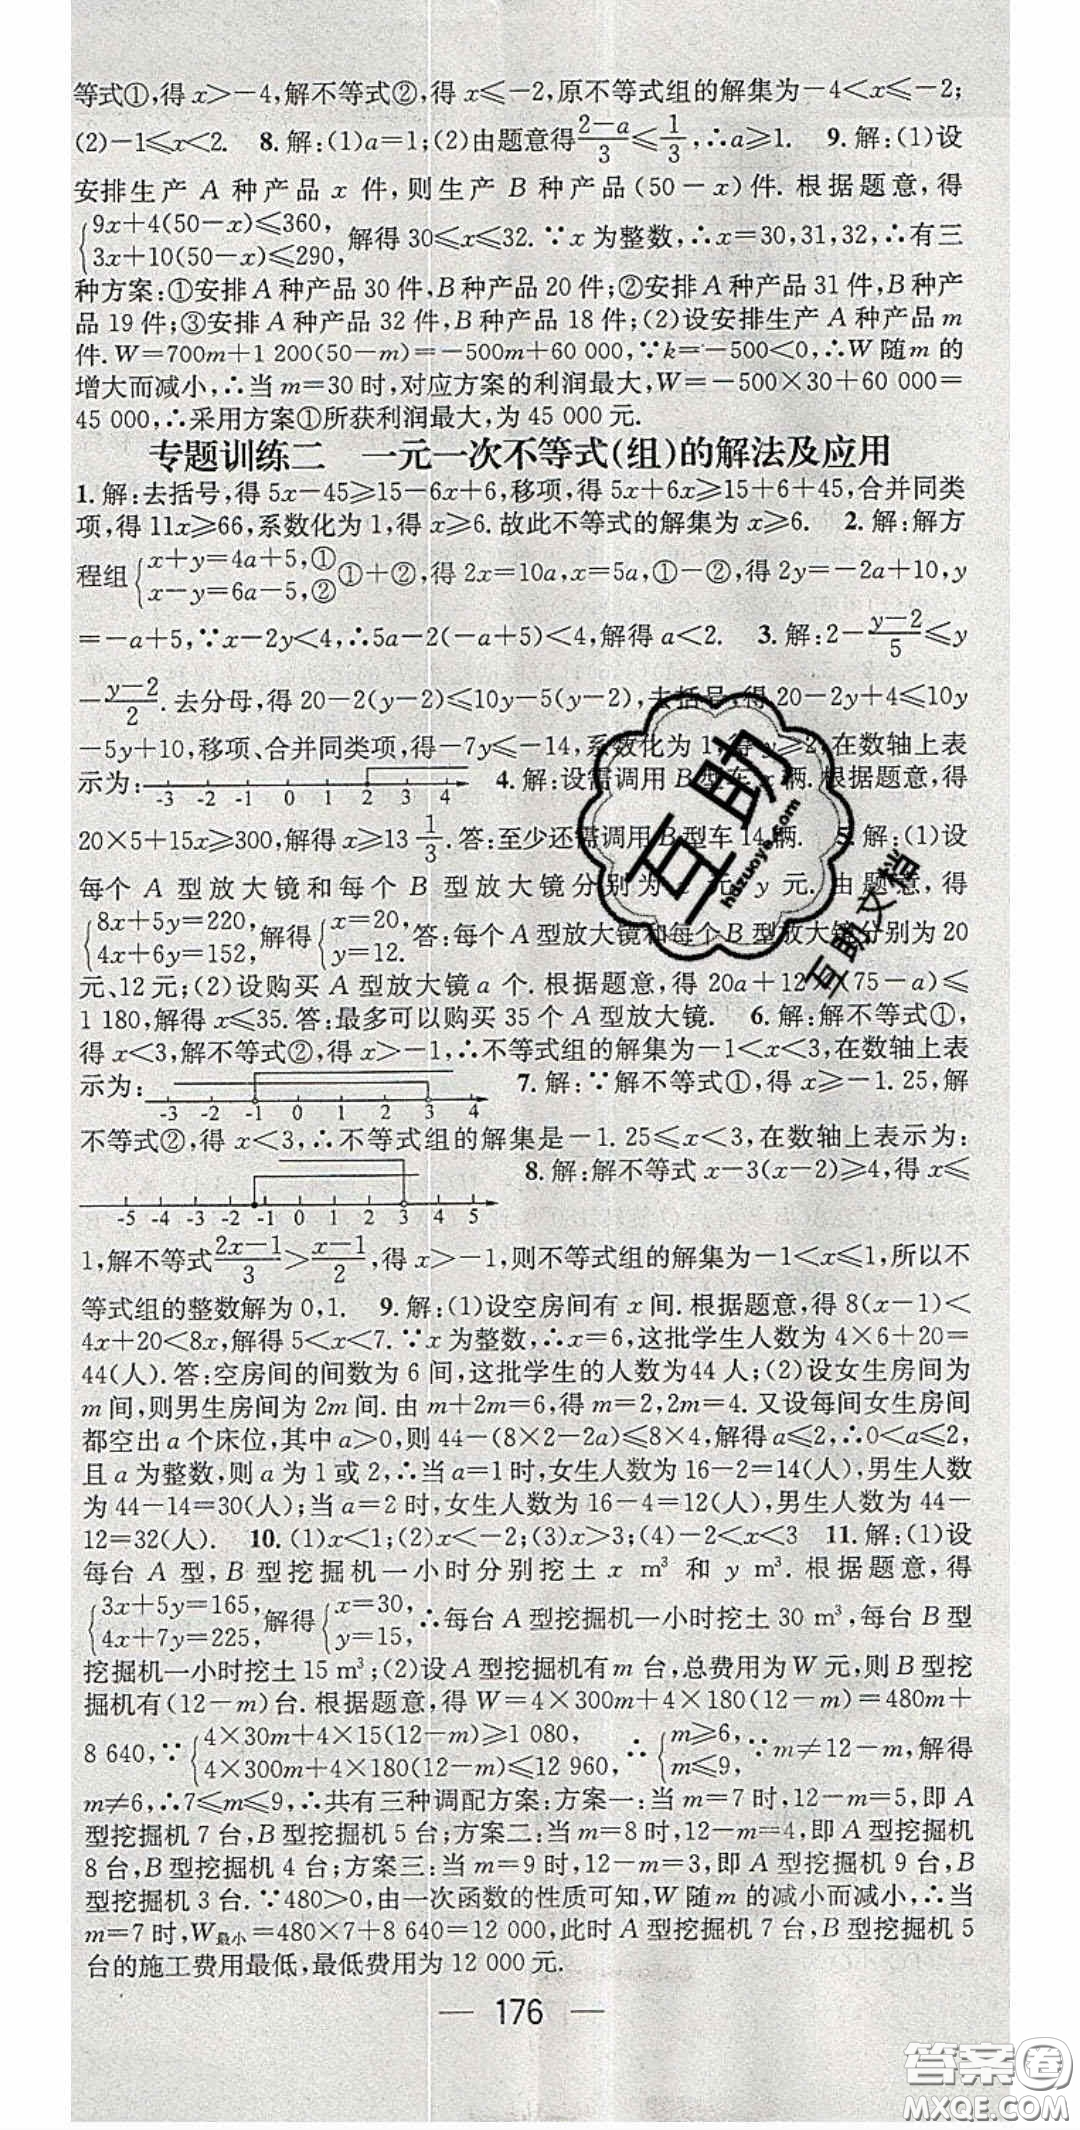 等式①,得 x>-4,解不等式②,得 x≤-2,原不等式组的解集为-4<x≤-2;
(2)-1≤x<2. 8. 解:(1)a=1;(2)由题意得(2-a)/3≤1/3,∴a≥1. 9. 解:(1)设
安排生产 A 种产品 x 件,则生产 B 种产品(50-x)件. 根据题意,得
{9x+4(50-x)≤360,
3x+10(50-x)≤290, 解得 30≤x≤32. ∵x 为整数,∴x=30,31,32,∴有三
种方案:①安排A种产品 30 件,B种产品 20 件;②安排A种产品 31 件,B种产
品 19 件;③安排A种产品 32 件,B种产品 18 件;(2)设安排生产A种产品m
件. W=700m+1 200(50-m)=-500m+60 000,∵k=-500<0,∴W 随m 的
增大而减小,∴当 m=30 时,对应方案的利润最大,W=-500×30+60 000=
45 000,∴采用方案①所获利润最大,为 45 000 元.
专题训练二 一元一次不等式(组)的解法及应用
1. 解:去括号,得 5x-45≥15-6x+6,移项,得 5x+6x≥15+6+45,合并同类
项,得 11x≥66,系数化为 1,得 x≥6. 故此不等式的解集为 x≥6. 2. 解:解方
程组{x+y=4a+5,①
x-y=6a-5,② ①+②,得 2x=10a,x=5a,①-②,得 2y=-2a+10,y
=-a+5,∵x-2y<4,∴5a-2(-a+5)<4,解得 a<2. 3. 解:2-(y-2)/5≤y
-(y-2)/2. 去分母,得 20-2(y-2)≤10y-5(y-2),去括号,得 20-2y+4≤10y
-5y+10,移项、合并同类项,得-7y≤-14,系数化为 1,得 y≥2,在数轴上表
示为: -3 -2 -1 0 1 2 3 4 4. 解:设需调用 B 型车 x 辆. 根据题意,得
20×5+15x≥300,解得 x≥13 1/3. 答:至少还需调用B型车 14 辆. 5. 解:(1)设
每个 A 型放大镜和每个 B 型放大镜分别为 x 元,y 元. 由题意,得
{8x+5y=220,
4x+6y=152, 解得{x=20,
y=12. 答:每个A型放大镜和每个B型放大镜分别为 20
元、12元;(2)设购买 A 型放大镜 a 个. 根据题意,得 20a+12×(75-a)≤
1 180,解得 x≤35. 答:最多可以购买 35 个 A 型放大镜. 6. 解:解不等式①,
得 x<3,解不等式②,得 x>-1,∴不等式组的解集为-1<x<3,在数轴上表
示为: -3 -2 -1 0 1 2 3 4 7. 解:∵解不等式①,得 x≥-1.25,解
不等式②,得 x<3,∴不等式组的解集是-1.25≤x<3,在数轴上表示为:
-5 -4 -3 -2 -1 0 1 2 3 4 5 8. 解:解不等式 x-3(x-2)≥4,得 x≤
1,解不等式(2x-1)/3>(x-1)/2,得 x>-1,则不等式组的解集为-1<x≤1,所以不
等式组的整数解为 0,1. 9. 解:(1)设空房间有 x 间. 根据题意,得 8(x-1)<
4x+20<8x,解得 5<x<7. ∵x 为整数,∴x=6,这批学生人数为 4×6+20=
44(人). 答:空房间的间数为 6 间,这批学生的人数为44 人;(2)设女生房间为
m间,则男生房间为 2m间. 由 m+2m=6,得 m=2,2m=4. 又设每间女生房间
都空出a个床位,其中a>0,则 44-(8×2-2a)≤8×4,解得a≤2,∴0<a≤2,
且 a 为整数,则 a 为 1 或 2,∴当a=1时,女生人数为 16-2=14(人),男生人数
为 44-14=30(人);当 a=2 时,女生人数为 16-4=12(人),男生人数为 44-
12=32(人). 10. (1)x<1;(2)x<-2;(3)x>3;(4)-2<x<3 11. 解:(1)设
每台 A 型,B 型挖掘机一小时分别挖土 x m³ 和 y m³. 根据题意,得
{3x+5y=165,
4x+7y=225, 解得{x=30,
y=15, ∴每台 A 型挖掘机一小时挖土 30 m³,每台 B 型
挖掘机一小时挖土 15 m³;(2)设A型挖掘机有 m 台,总费用为W元,则B型挖
掘机有(12-m)台. 根据题意,得 W=4×300m+4×180(12-m)=480m+
8 640,∵{4×30m+4×15(12-m)≥1 080,
4×300m+4×180(12-m)≤12 960, ∴{m≥6,
m≤9, ∵m≠12-m,解得
m≠6,∴7≤m≤9,∴共有三种调配方案;方案一:当 m=7 时,12-m=5,即 A
型挖掘机 7 台,B型挖掘机 5 台;方案二:当 m=8 时,12-m=4,即A型挖掘机
8 台,B型挖掘机 4 台;方案三:当 m=9 时,12-m=3,即A型挖掘机 9 台,B
型挖掘机 3 台. ∵480>0,由一次函数的性质可知,W 随 m 的减小而减小,∴当
m=7 时,W最小=480×7+8 640=12 000,此时A型挖掘机 7 台,B型挖掘机 5
台的施工费用最低,最低费用为 12 000 元.
— 176 —
互助
hdzuoye.com
互助文档
答案圈
MXQE.COM